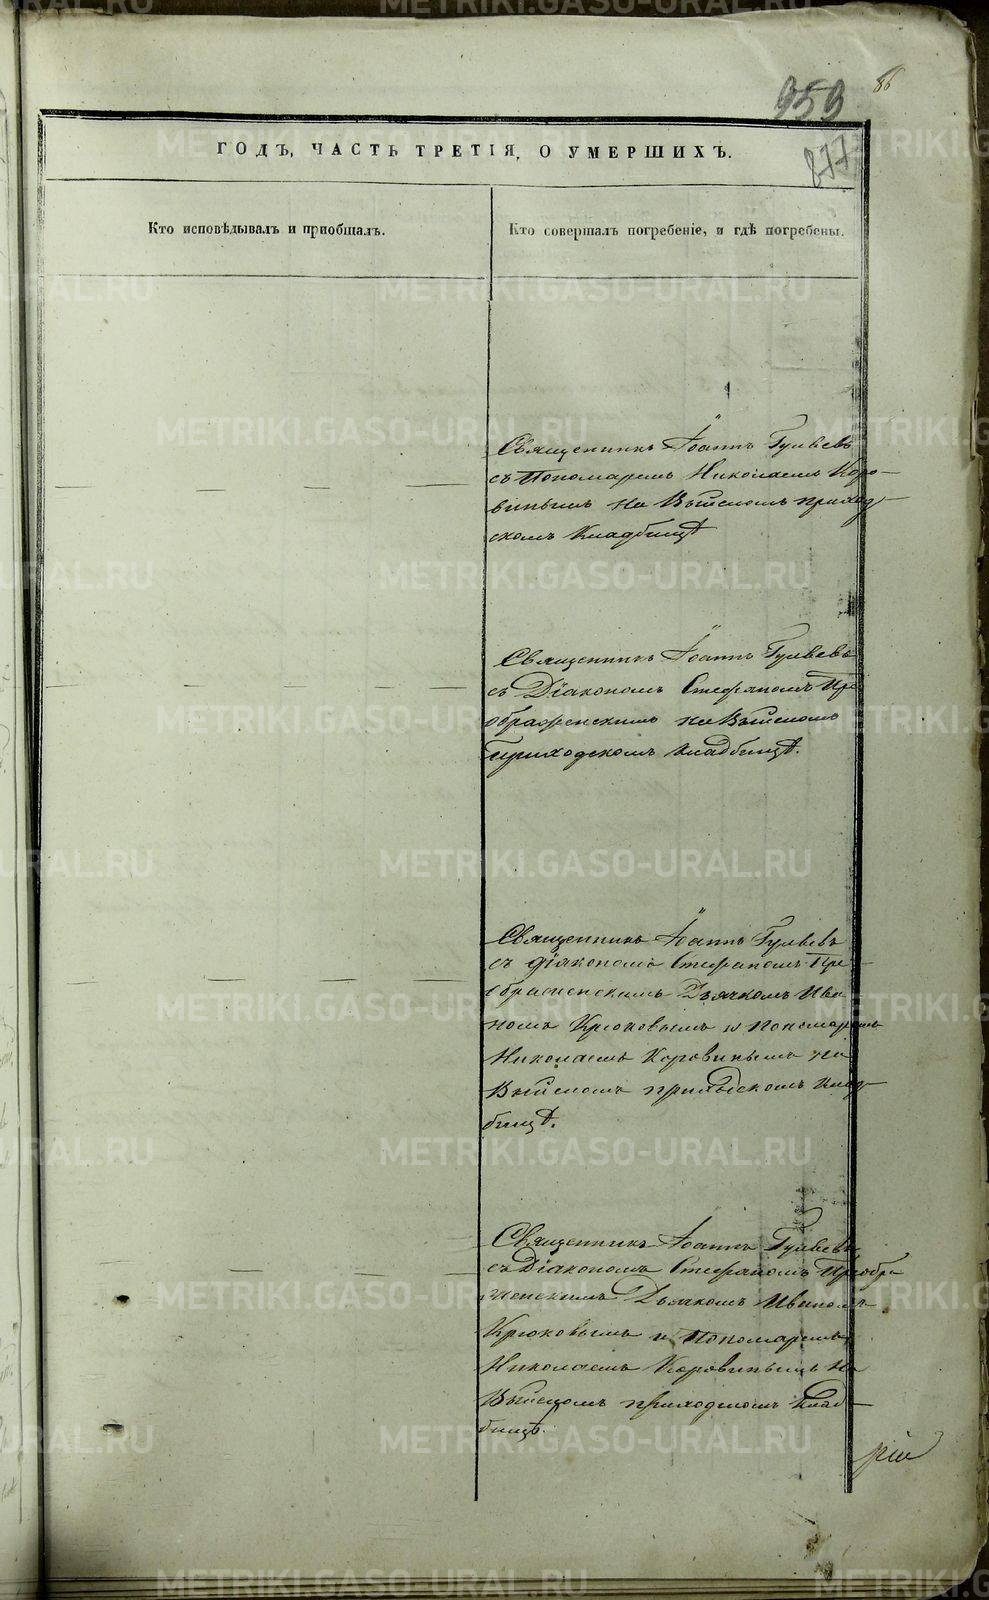 959
86
877
ГОДЪ, ЧАСТЬ ТРЕТІЯ, О УМЕРШИХЪ.
Кто исповѣдывалъ и пріобщалъ.
Кто совершалъ погребеніе, и гдѣ погребены.
Священникъ Іоаннъ Гуляевъ
съ Пономаремъ Николаемъ Коро-
винымъ на Выйскомъ приход-
скомъ Кладбищѣ
Священникъ Іоаннъ Гуляевъ
съ Діакономъ Стефаномъ Пре
ображенскимъ на Выйскомъ
Приходскомъ кладбищѣ.
Священникъ Іоаннъ Гуляевъ
съ діакономъ Стефаномъ Пре-
ображенскимъ Дьячкомъ Ива
номъ Крюковымъ и Пономаремъ
Николаемъ Коровинымъ на
Выйскомъ приходскомъ клад-
бищѣ.
Священникъ Іоаннъ Гуляевъ
съ Діакономъ Стефаномъ Преобра
женскимъ Дьячкомъ Иваномъ
Крюковымъ и Пономаремъ
Николаемъ Коровинымъ на
Выйскомъ приходскомъ Клад-
бищѣ.
рій
METRIKI.GASO-URAL.RU